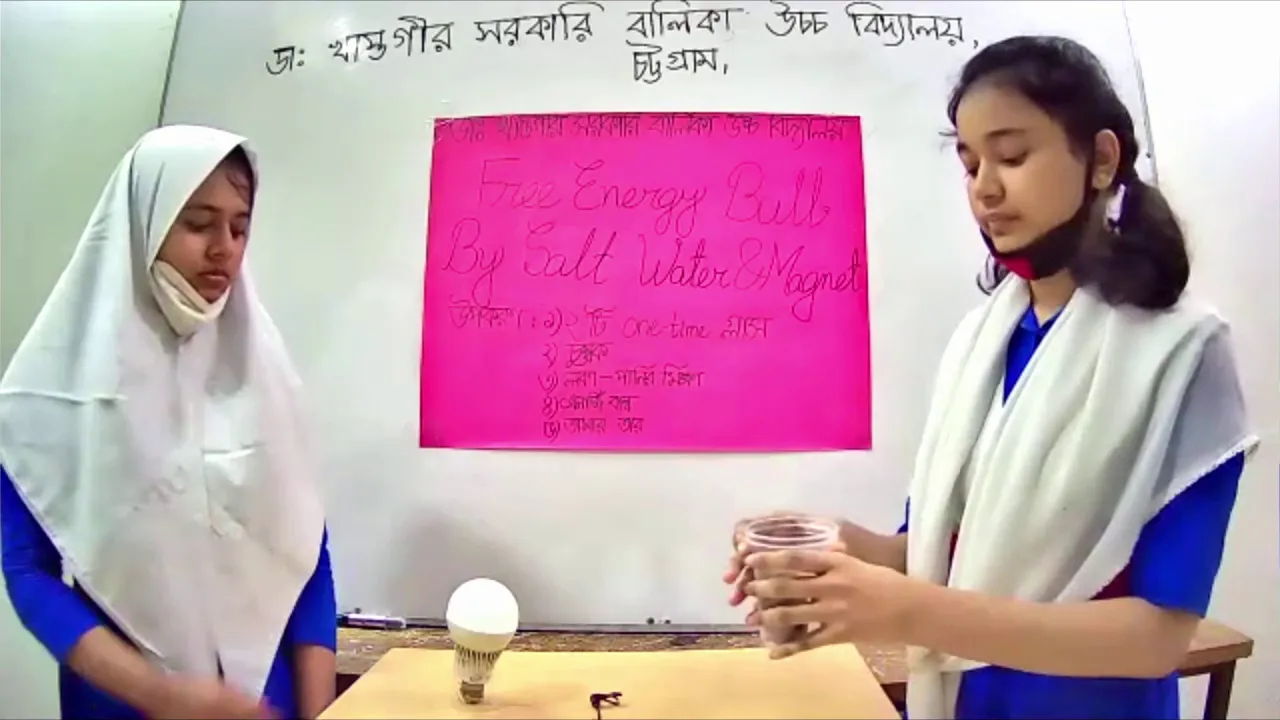 ডাঃ খাস্তগীর সরকারি বালিকা উচ্চ বিদ্যালয়,
চট্টগ্রাম,
ডাঃ খাস্তগীর সরকারি বালিকা উচ্চ বিদ্যালয়
Free Energy Bulb
By Salt Water & Magnet
উপকরণ : ১) ২টি one-time গ্লাস
২) চুম্বক
৩) লবণ-পানির মিশ্রণ
৪) এনার্জি বাল্ব
৫) তামার তার